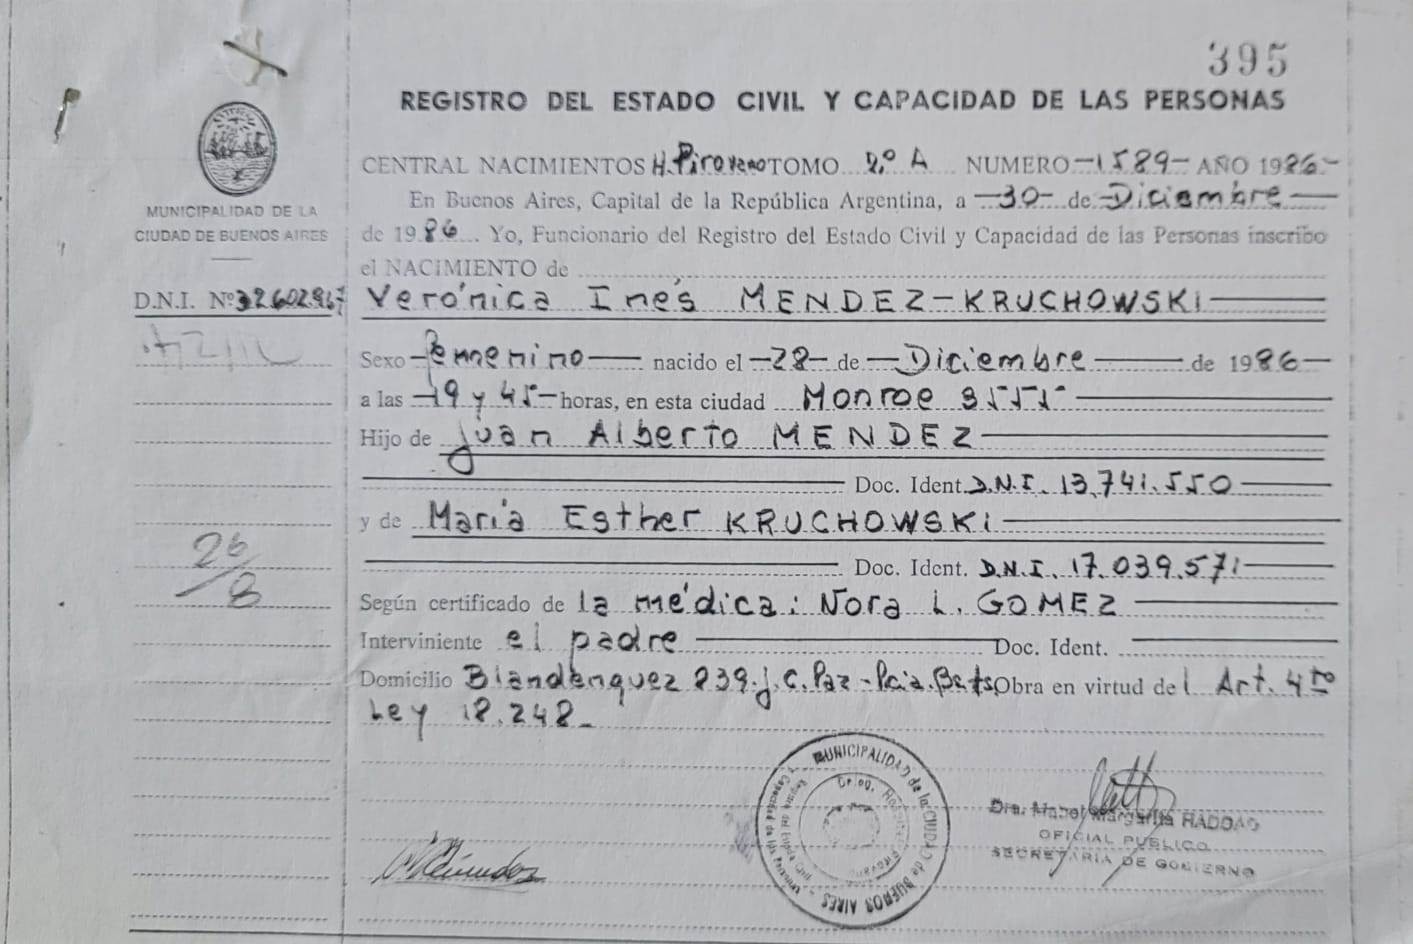 395
REGISTRO DEL ESTADO CIVIL Y CAPACIDAD DE LAS PERSONAS
MUNICIPALIDAD DE LA
CIUDAD DE BUENOS AIRES
D.N.I. Nº 32.602.967
26/8
CENTRAL NACIMIENTOS H. Pirovano TOMO 2º A NUMERO -1589- AÑO 1986-
En Buenos Aires, Capital de la República Argentina, a -30- de -Diciembre-
de 1986. Yo, Funcionario del Registro del Estado Civil y Capacidad de las Personas inscribo
el NACIMIENTO de
Verónica Inés MENDEZ-KRUCHOWSKI
Sexo -Femenino- nacido el -28- de -Diciembre- de 1986-
a las -19 y 45- horas, en esta ciudad Monroe 3555-
Hijo de Juan Alberto MENDEZ
Doc. Ident. D.N.I. 13.741.550
y de María Esther KRUCHOWSKI
Doc. Ident. D.N.I. 17.039.571
Según certificado de la médica: Nora L. GOMEZ
Interviniente el padre Doc. Ident.
Domicilio Blandenquez 839. J. C. Paz - Pcia. Bs As Obra en virtud del Art. 4to
Ley 18.248-
MUNICIPALIDAD de la CIUDAD de BUENOS AIRES
Dra. Mabel Margarita HADDAD
OFICIAL PUBLICO
SECRETARIA DE GOBIERNO